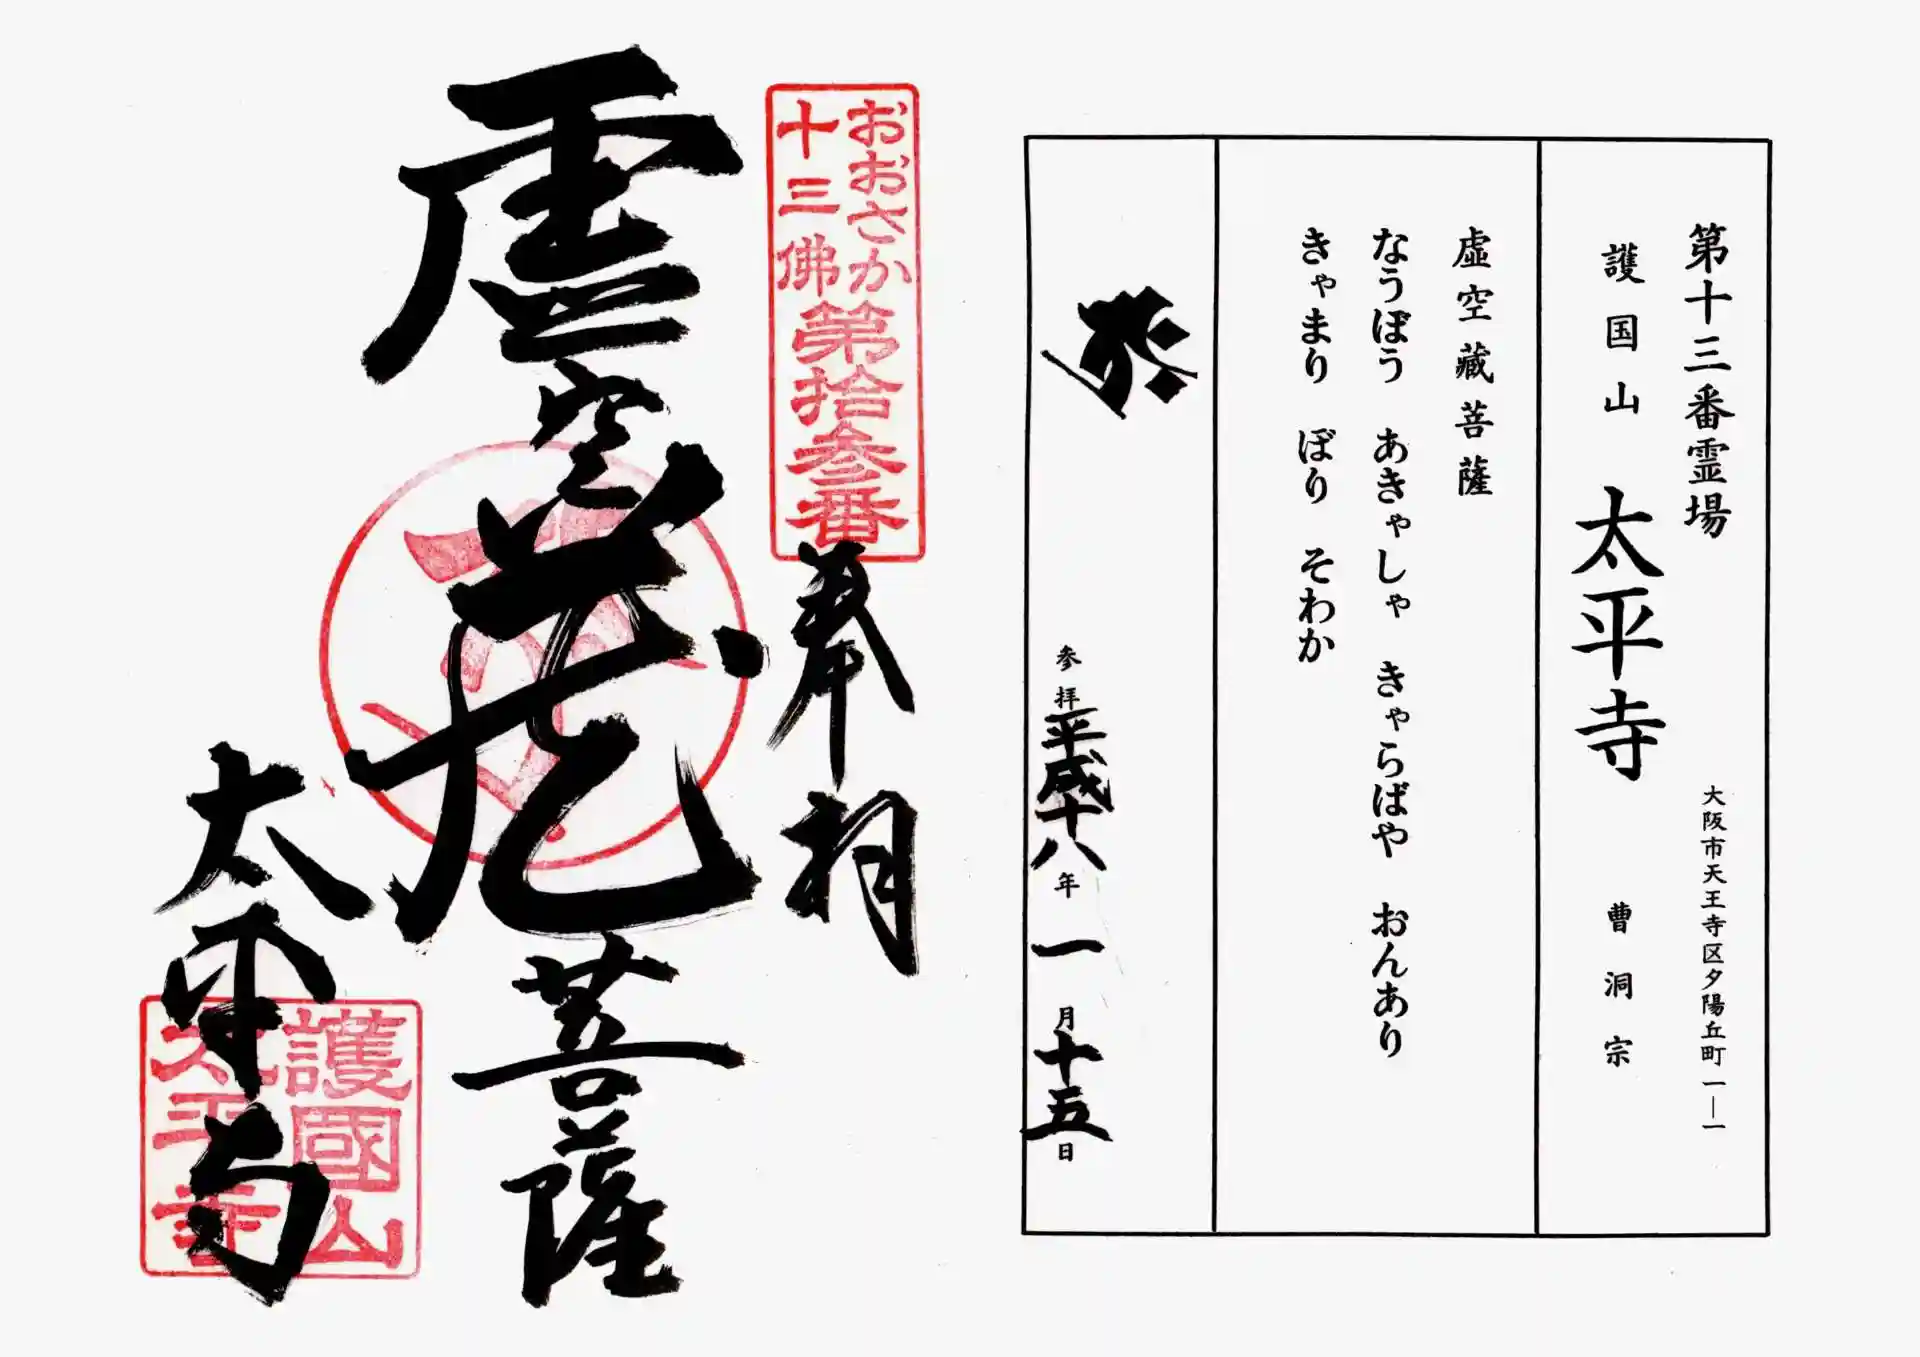 第十三番霊場
大阪市天王寺区夕陽丘町一―一
護国山 太平寺 曹洞宗
虚空蔵菩薩
なうぼう あきゃしゃ きゃらばや おんあり
きゃまり ぼり そわか
参拝 平成十八年 一月十五日
おおさか
十三佛
第拾参番
奉拝
虚空蔵菩薩
太平寺
護國山
太平寺